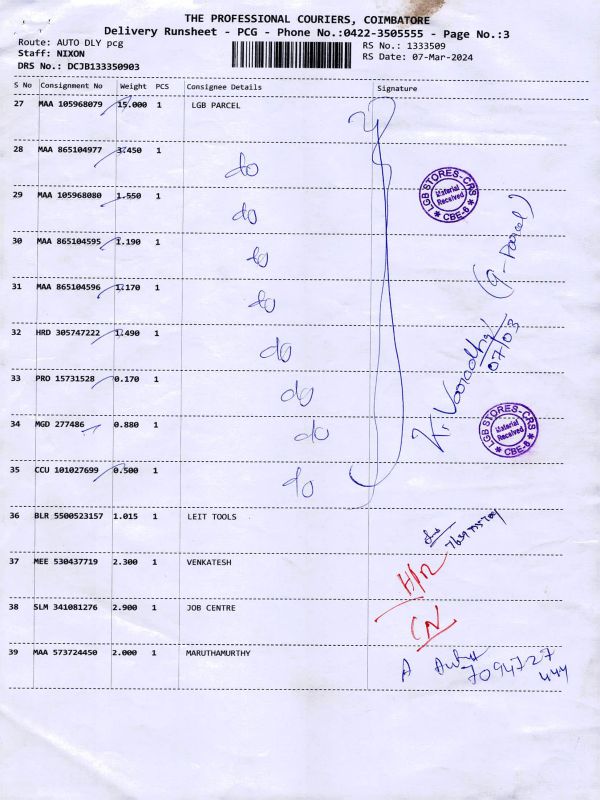 THE PROFESSIONAL COURIERS, COIMBATORE
Delivery Runsheet - PCG - Phone No.:0422-3505555 - Page No.:3
Route: AUTO DLY pcg
RS No.: 1333509
Staff: NIXON
RS Date: 07-Mar-2024
DRS No.: DCJB133350903
S No Consignment No Weight PCS Consignee Details Signature
27 MAA 105968079 15.000 1 LGB PARCEL
28 MAA 865104977 3.450 1 do
29 MAA 105968080 1.550 1 do
LGB STORES-CRS
Material Received
* CBE-6 *
30 MAA 865104595 1.190 1 do
(9-Parcel)
31 MAA 865104596 1.170 1 do
32 HRD 305747222 1.490 1 do
07/03
33 PRO 15731528 0.170 1 do
34 MGD 277486 0.880 1 do
LGB STORES-CRS
Material Received
* CBE-6 *
35 CCU 101027699 0.500 1 do
36 BLR 5500523157 1.015 1 LEIT TOOLS
37 MEE 530437719 2.300 1 VENKATESH
38 SLM 341081276 2.900 1 JOB CENTRE
CN
39 MAA 573724450 2.000 1 MARUTHAMURTHY
A
7094727
444